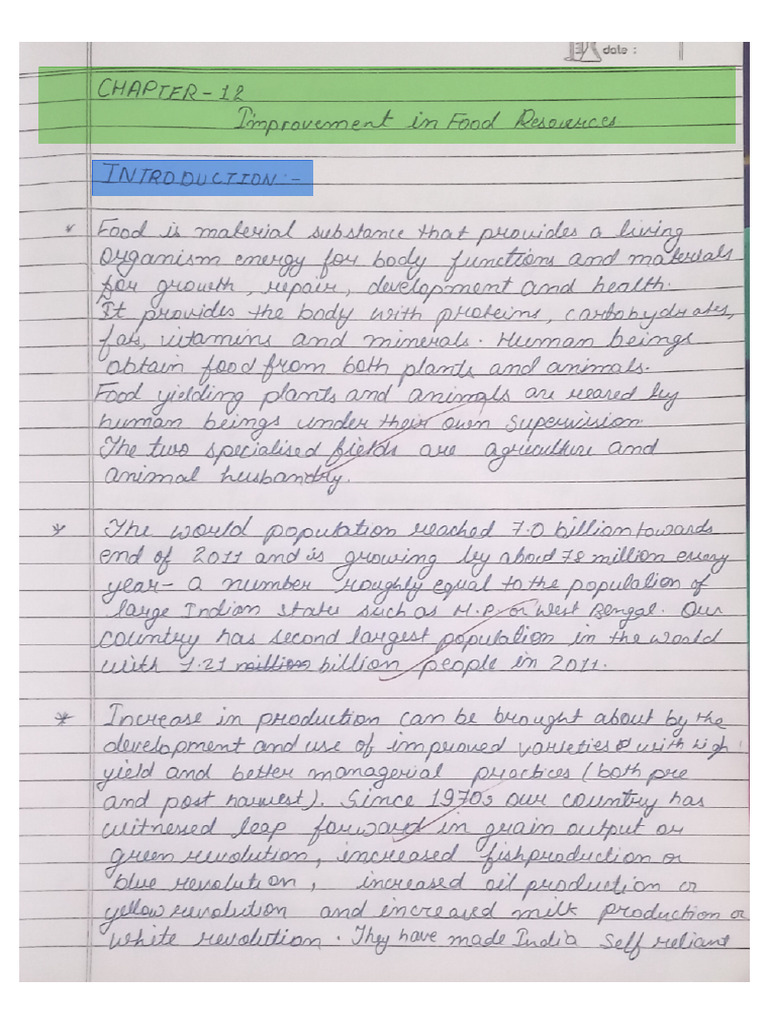 date :
CHAPTER - 12
Improvement in Food Resources
INTRODUCTION :-
Food is material substance that provides a living
organism energy for body functions and materials
for growth, repair, development and health.
It provides the body with proteins, carbohydrates,
fats, vitamins and minerals. Human beings
obtain food from both plants and animals.
Food yielding plants and animals are reared by
human beings under their own supervision.
The two specialised fields are agriculture and
animal husbandry.
* The world population reached 7.0 billion towards
end of 2011 and is growing by about 78 million every
year - a number roughly equal to the population of
large Indian states such as M.P. or West Bengal. Our
country has second largest population in the world
with 1.21 million billion people in 2011.
* Increase in production can be brought about by the
development and use of improved varieties with high
yield and better managerial practices (both pre
and post harvest). Since 1970s our country has
witnessed leap forward in grain output or
green revolution, increased fish production or
blue revolution, increased oil production or
yellow revolution and increased milk production or
white revolution. They have made India self reliant